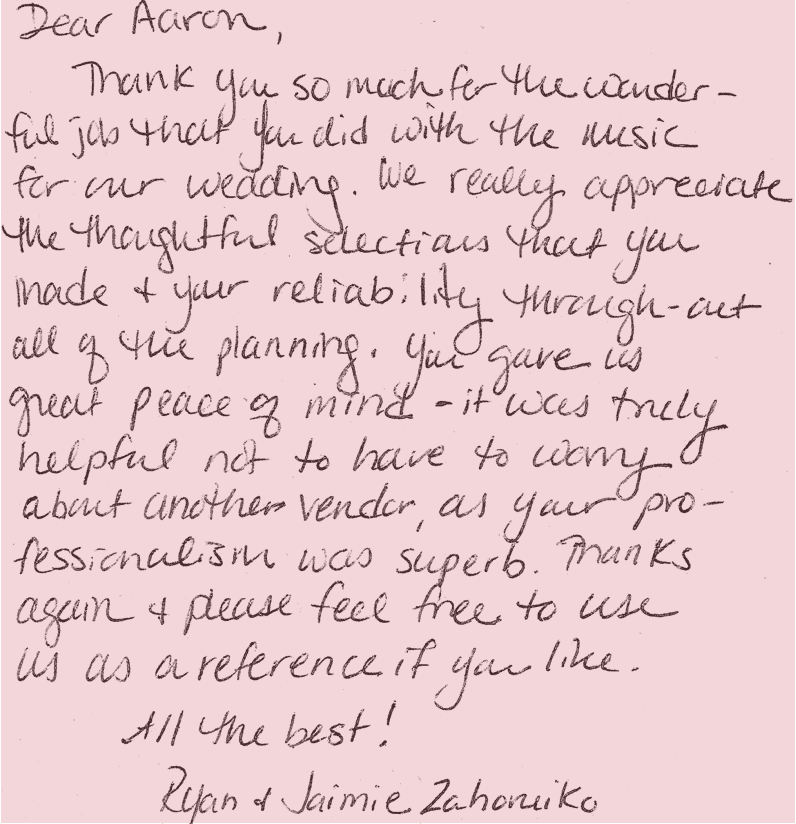 Dear Aaron,
Thank you so much for the wonder-
ful job that you did with the music
for our wedding. We really appreciate
the thoughtful selections that you
made + your reliability through-out
all of the planning. You gave us
great peace of mind - it was truly
helpful not to have to worry
about another vendor, as your pro-
fessionalism was superb. Thanks
again + please feel free to use
us as a reference if you like.
All the best!
Ryan + Jaimie